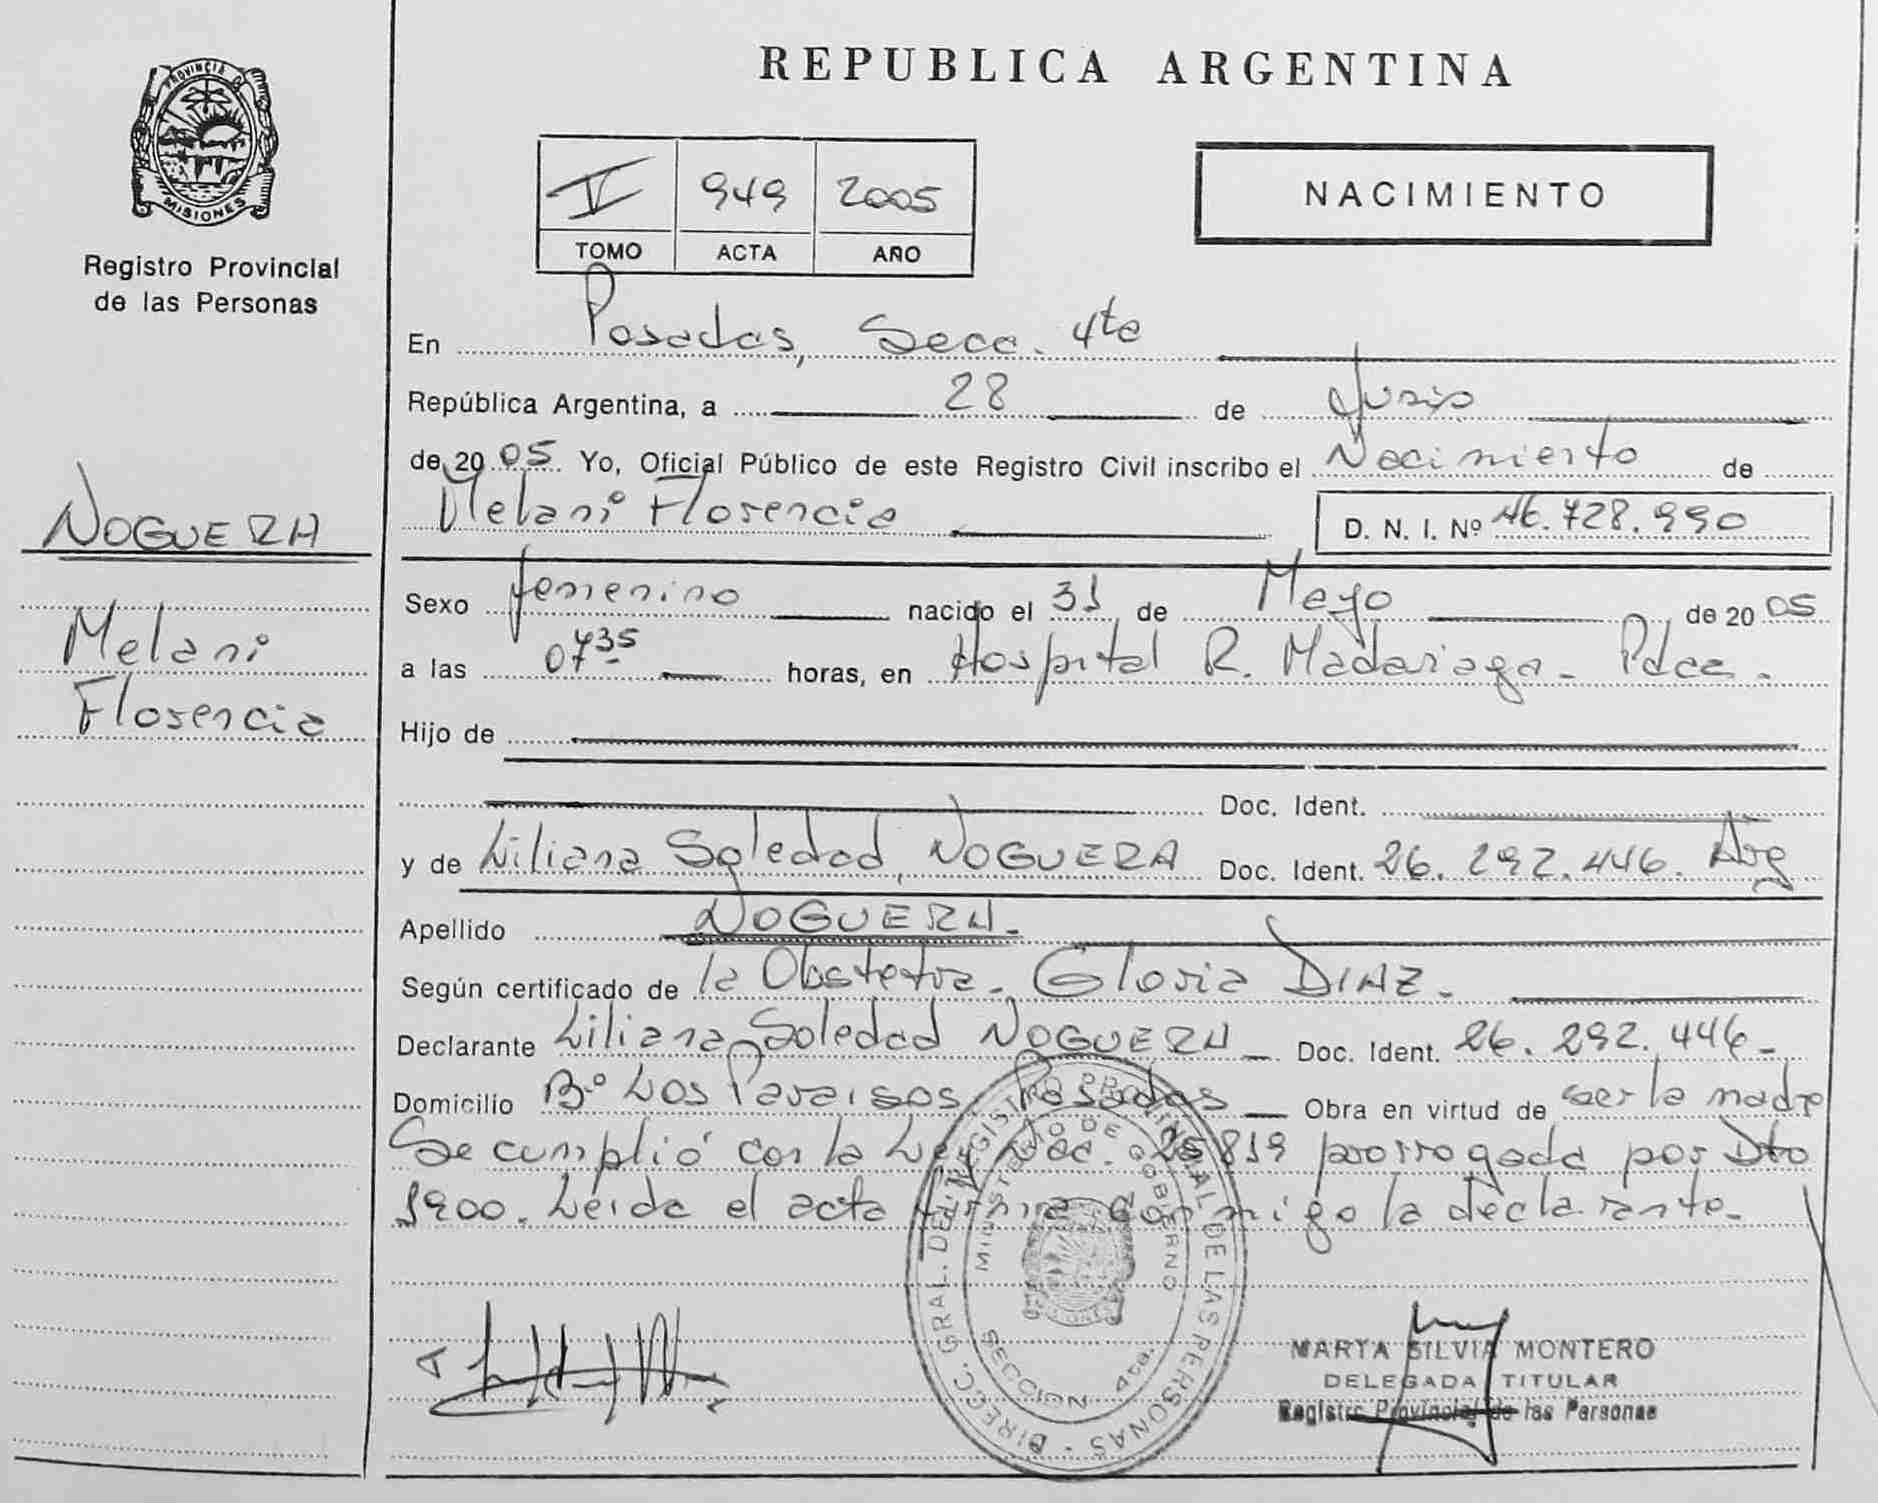 REPUBLICA ARGENTINA
PROVINCIA DE
MISIONES
Registro Provincial
de las Personas
V 949 2005
TOMO ACTA AÑO
NACIMIENTO
En Posadas, Secc. 4ta
República Argentina, a 28 de Junio
de 2005 Yo, Oficial Público de este Registro Civil inscribo el Nacimiento de
Melani Florencia D. N. I. Nº 46.728.990
NOGUERA
Melani
Florencia
Sexo femenino nacido el 31 de Mayo de 2005
a las 07 35 horas, en Hospital R. Madariaga - Pdas.
Hijo de
Doc. Ident.
y de Liliana Soledad NOGUERA Doc. Ident. 26.292.446. Arg
Apellido NOGUERA.
Según certificado de la Obstetra. Gloria DIAZ.
Declarante Liliana Soledad NOGUERA Doc. Ident. 26.292.446-
Domicilio Bº Los Paraisos, Posadas Obra en virtud de ser la madre
Se cumplió con la Ley Nac. 25819 prorrogada por Dto
1900. Leida el acta firma conmigo la declarante.
DIRECC. GRAL. DEL REGISTRO PROVINCIAL DE LAS PERSONAS
MINISTERIO DE GOBIERNO
SECCION 4ta.
MARTA SILVIA MONTERO
DELEGADA TITULAR
Registro Provincial de las Personas